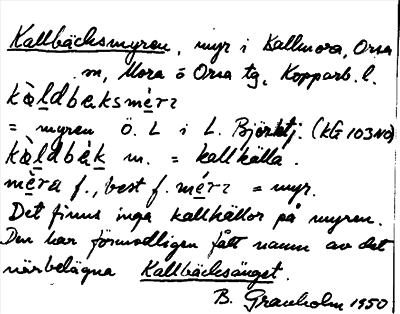 Kallbäcksmyren, myr i Kallmora, Orsa
m, Mora o Orsa tg, Kopparb. l.
kàldbɛksmèrɪ
= myren Ö. L i L. Björktj. (KG 103 NO)
kàldbɛ̀k m. = kallkälla.
mèra f., best f. mèrɪ = myr.
Det finns inga kallkällor på myren.
Den har förmodligen fått namn av det
närbelägna Kallbäcksänget.
B. Granholm 1950